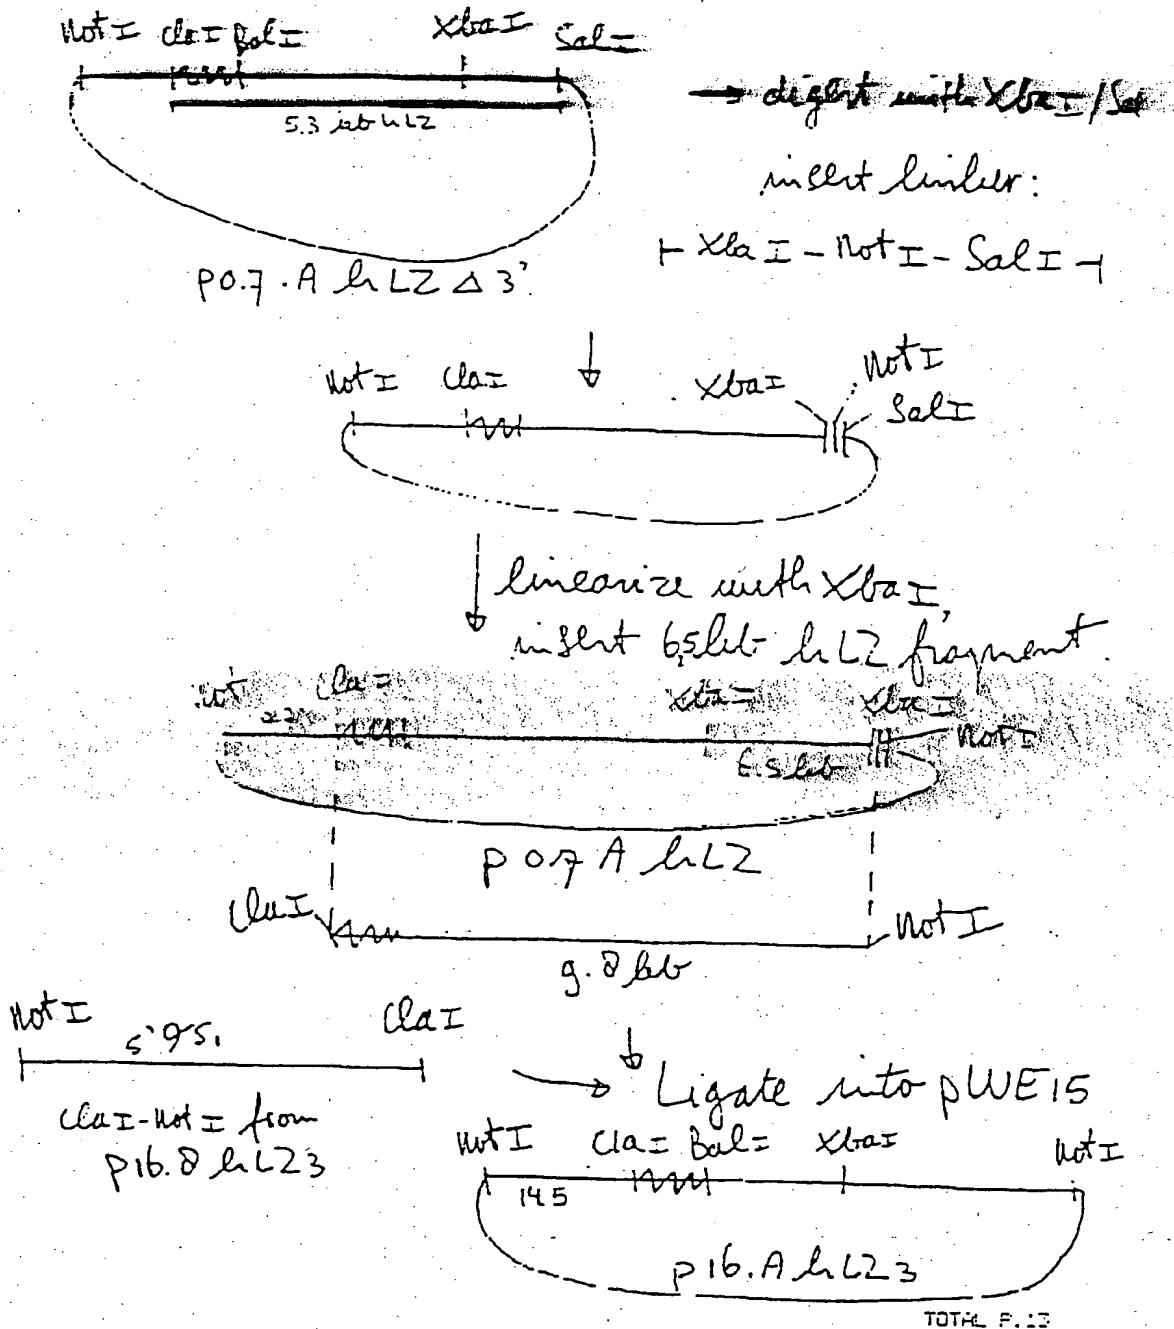 Not I ClaI BalI XbaI SalI
→ digest with XbaI/Sal
5.3 kb hLZ
insert linker:
⊢ Xba I - Not I - Sal I ⊣
p0.7.A hLZ Δ 3'
Not I ClaI XbaI Not I
SalI
linearize with XbaI,
insert 6,5 kb hLZ fragment.
Not ClaI XbaI XbaI
Not I
6.5 kb
p 0.7 A hLZ
ClaI Not I
9.8 kb
Not I ClaI
5' 9S.
Ligate into pWE15
ClaI-Not I from
p16.8 hLZ3
Not I ClaI BalI XbaI Not I
14.5
p16.A hLZ3
TOTAL P.13